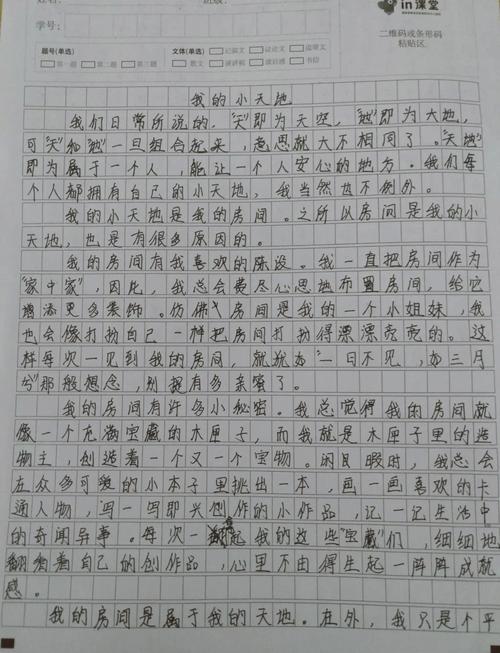 in课堂
学号：
二维码或条形码
粘贴区
题号(单选)
第一题 第二题 第三题
文体(单选) 记叙文 议论文 说明文
散文 演讲稿 读后感 书信
我的小天地
我们日常所说的，“天”即为天空，“地”即为大地，
可“天”和“地”一旦组合起来，意思就大不相同了。“天地”
即为属于一个人，能让一个人安心的地方。我们每
个人都拥有自己的小天地，我当然也不例外。
我的小天地是我的房间。之所以房间是我的小
天地，也是有很多原因的。
我的房间有我喜欢的陈设。我一直把房间作为
“家中家”，因此，我总会费尽心思地布置房间，给它
增添更多装饰。仿佛房间是我的一个小姐妹，我
也会像打扮自己一样把房间打扮得漂漂亮亮的。这
样每次一见到我的房间，就犹如“一日不见，如三月
兮”那般想念，别提有多亲蜜了。
我的房间有许多小秘密。我总觉得我的房间就
像一个充满宝藏的木匣子，而我就是木匣子里的造
物主，创造着一个又一个宝物。闲暇时，我总会
在众多可爱的小本子里挑出一本，画一画喜欢的卡
通人物，写一写即兴创作的小作品，记一记生活中
的奇闻异事。每次一看起我的这些“宝藏”们，细细地
翻看着自己的创作品，心里不由得生起一阵阵成就
感。
我的房间是属于我的天地。在外，我只是个平